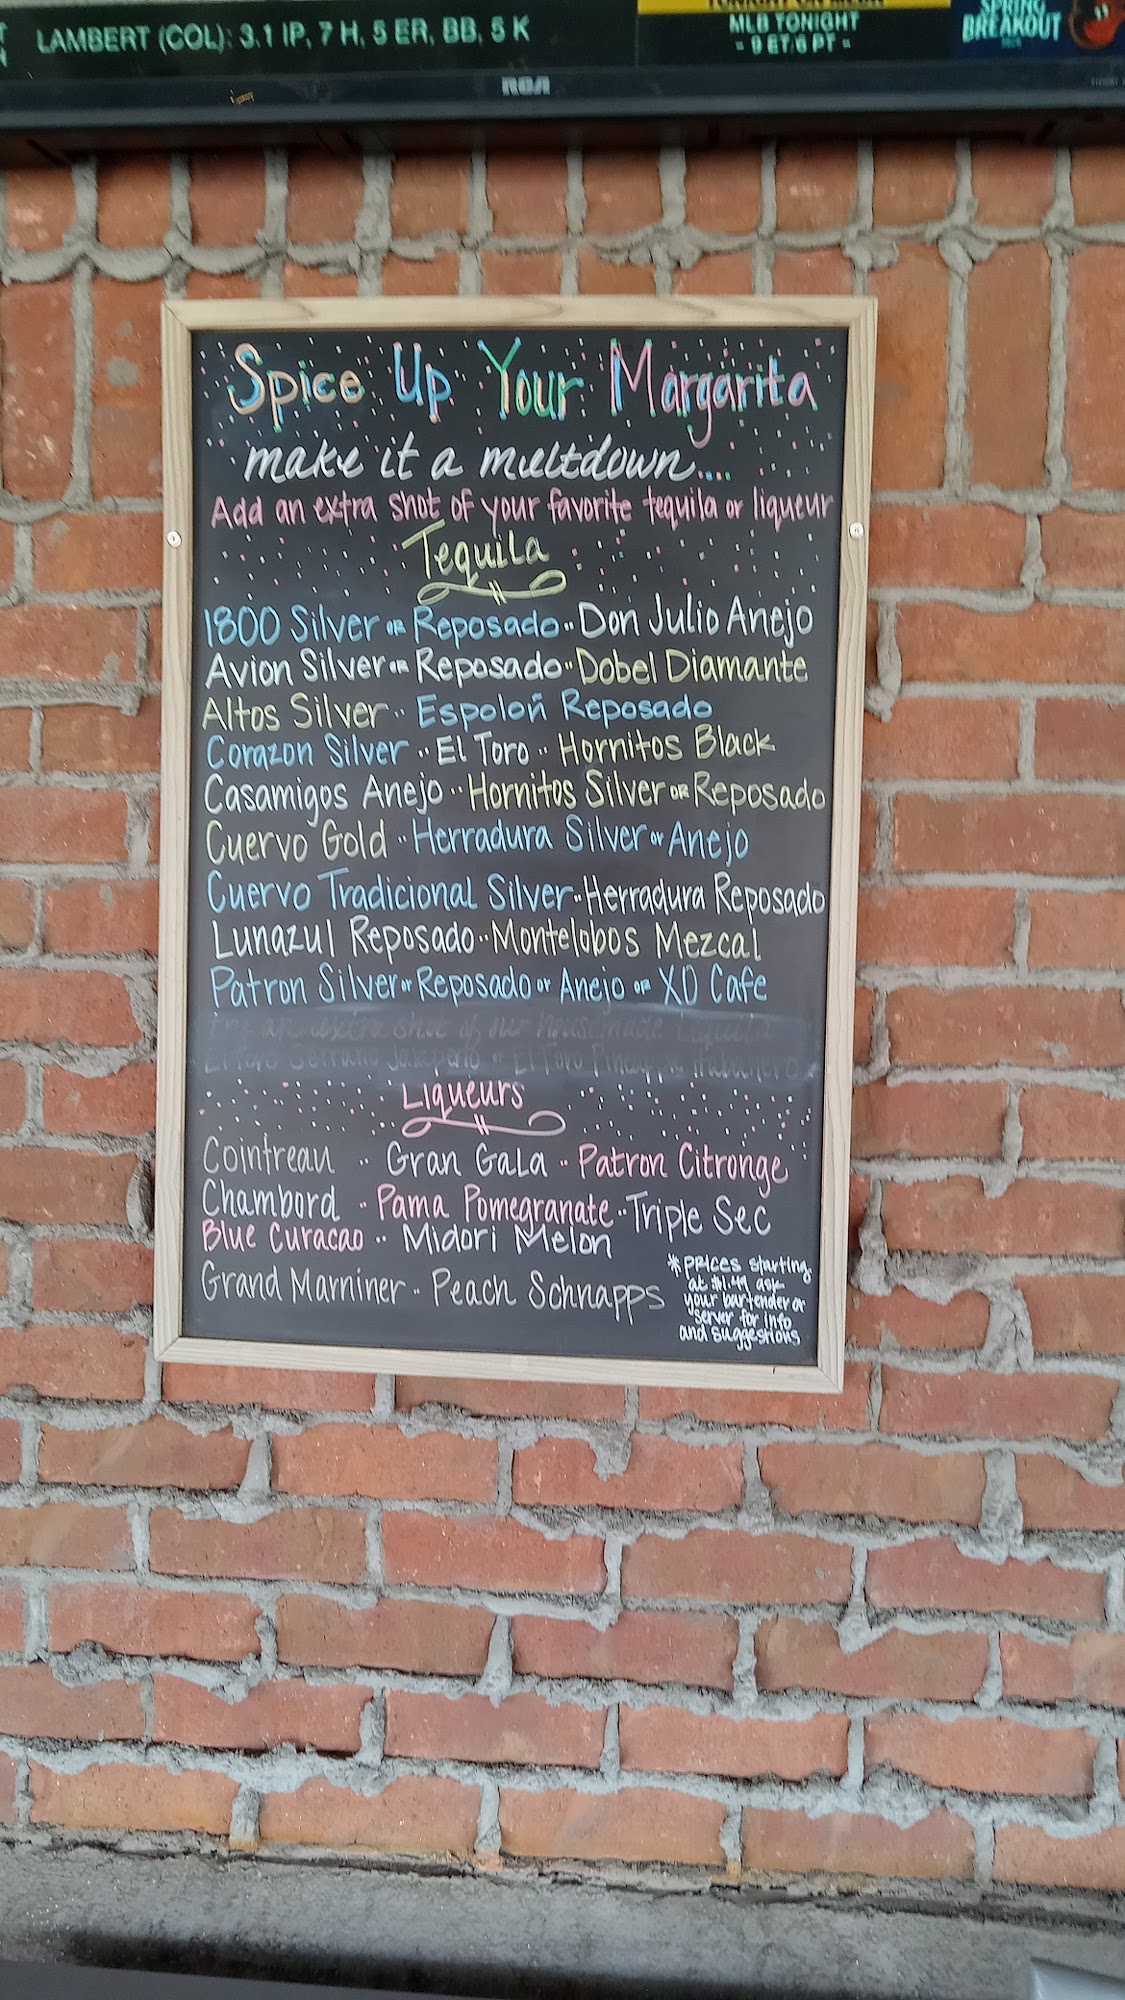 LAMBERT (COL): 3.1 IP, 7 H, 5 ER, BB, 5 K
MLB TONIGHT
- 9 ET/6 PT -
SPRING
BREAKOUT
RCA
Spice Up Your Margarita
make it a meltdown....
Add an extra shot of your favorite tequila or liqueur
Tequila
1800 Silver or Reposado·· Don Julio Anejo
Avion Silver or Reposado·· Dobel Diamante
Altos Silver ·· Espoloñ Reposado
Corazon Silver ·· El Toro ·· Hornitos Black
Casamigos Anejo ·· Hornitos Silver or Reposado
Cuervo Gold ·· Herradura Silver or Anejo
Cuervo Tradicional Silver ·· Herradura Reposado
Lunazul Reposado ·· Montelobos Mezcal
Patron Silver or Reposado or Anejo or XO Cafe
extra shot of our housemade tequila
El Toro Serrano Jalapeño or El Toro Pineapple Habanero
Liqueurs
Cointreau ·· Gran Gala ·· Patron Citronge
Chambord ·· Pama Pomegranate ·· Triple Sec
Blue Curacao ·· Midori Melon
Grand Marniner ·· Peach Schnapps
* prices starting
at $1.49 ask
your bartender or
server for info
and suggestions